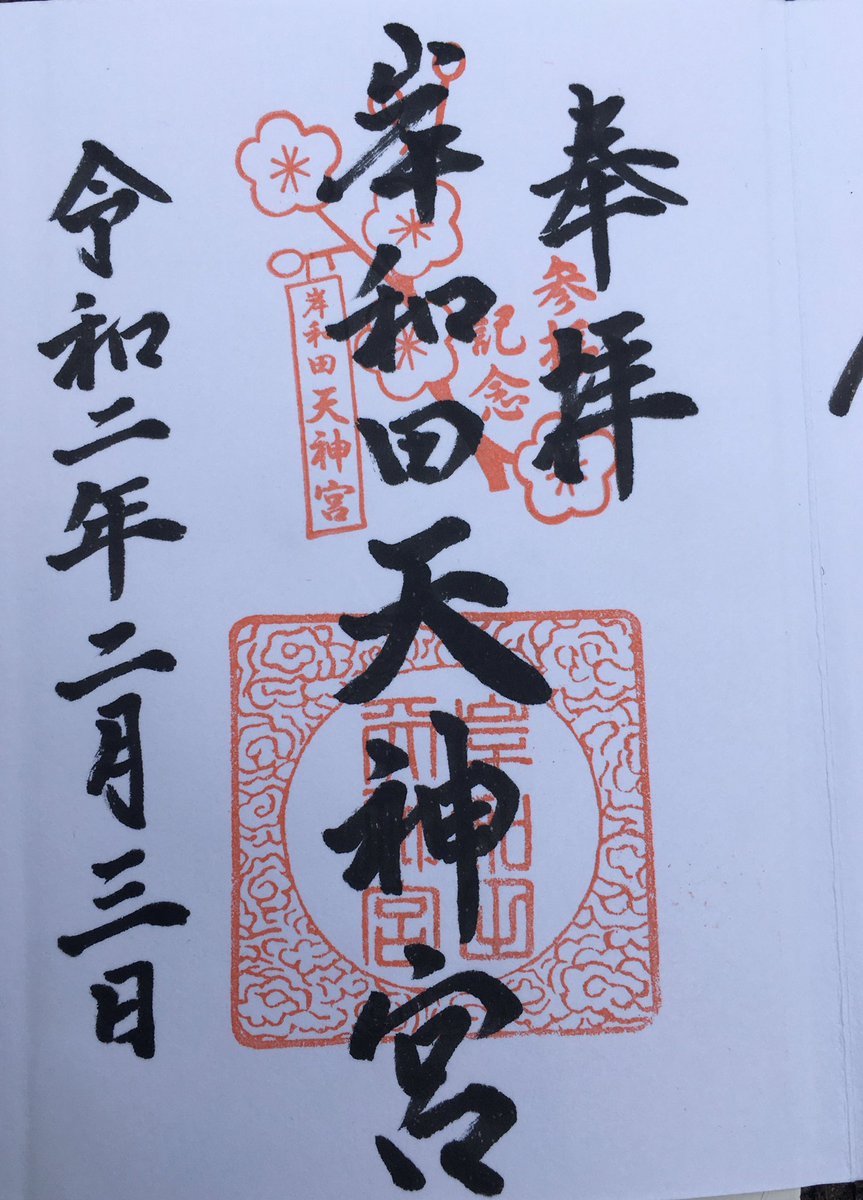 奉拝
参拝
記念
岸和田天神宮
岸和田天神宮
岸和田
天神宮
令和二年二月三日